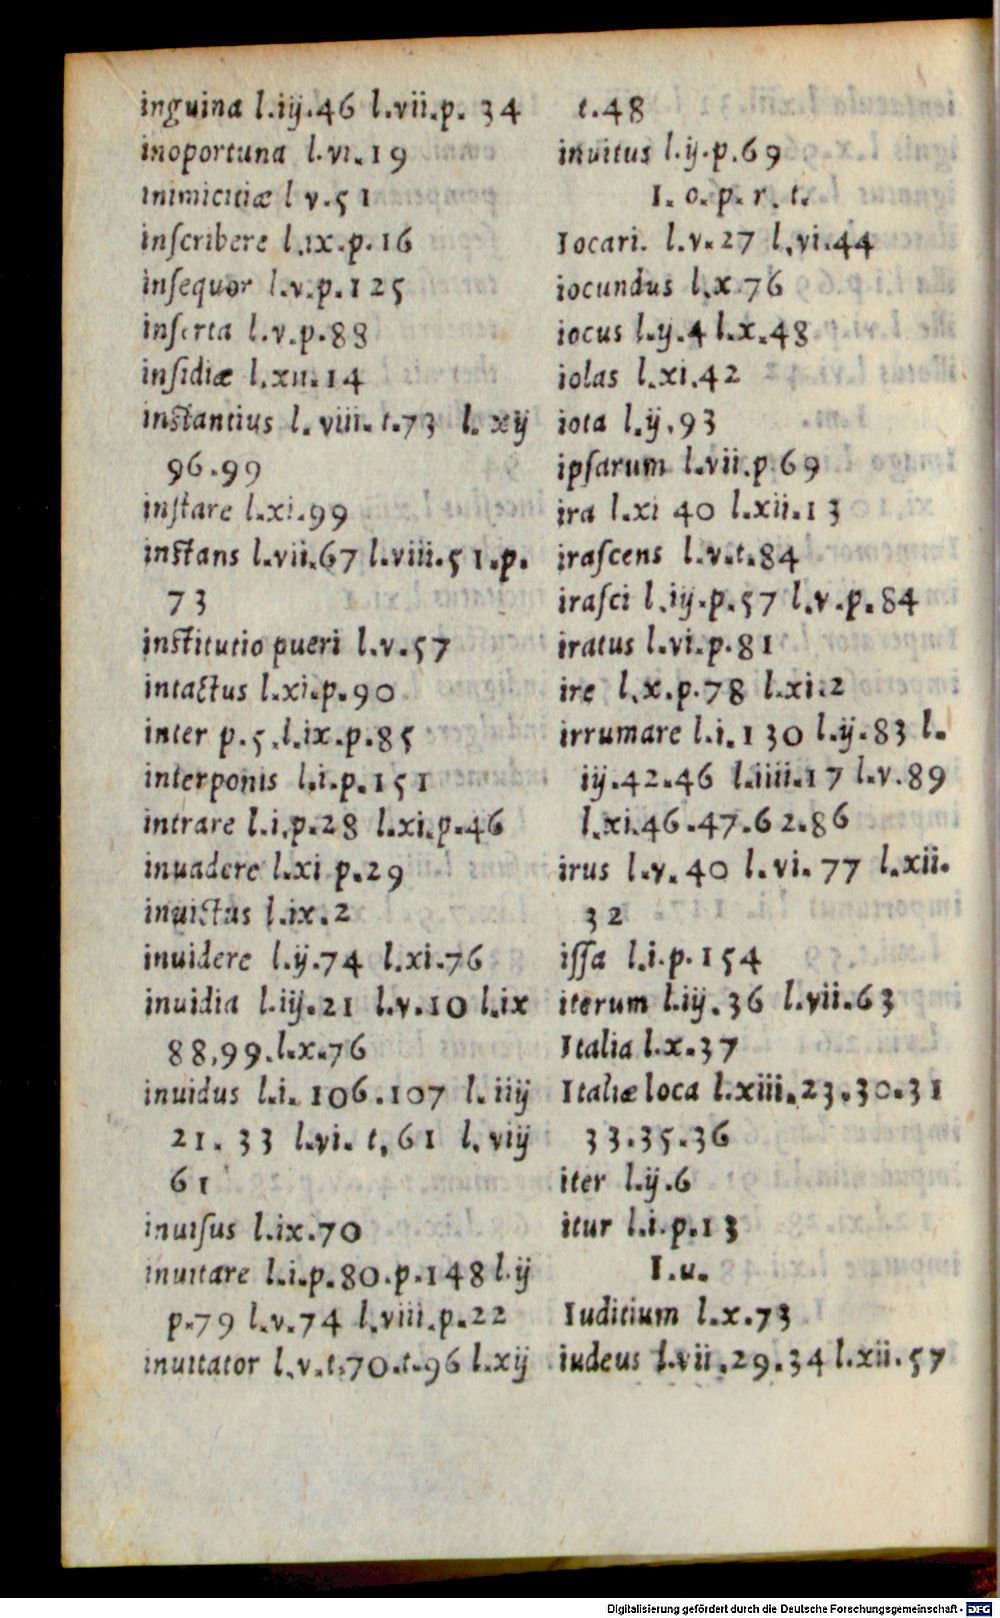 inguina l.iij.46 l.vii.p. 34
inoportuna l.vi.19
inimicitiæ l v.51
inſcribere l.ix.p.16
inſequor l.v.p.125
inſerta l.v.p.88
inſidiæ l.xii.14
inſtantius l. viii. t.73 l. xij
96.99
inſtare l.xi.99
inſtans l.vii.67 l.viii.51.p.
73
inſtitutio pueri l.v.57
intactus l.xi.p.90
inter p.5.l.ix.p.85
interponis l.i.p.151
intrare l.i.p.28 l.xi.p.46
inuadere l.xi p.29
inuictus l.ix.2
inuidere l.ij.74 l.xi.76
inuidia l.iij.21 l.v.10 l.ix
88,99.l.x.76
inuidus l.i. 106.107 l. iiij
21. 33 l.vi. t,61 l. viij
61
inuiſus l.ix.70
inuitare l.i.p.80.p.148 l.ij
p.79 l.v.74 l.viii.p.22
inuitator l.v.t.70.t.96 l.xij
t.48
inuitus l.ij.p.69
I. o. p. r. t.
Iocari. l.v.27 l.vi.44
iocundus l.x.76
iocus l.ij.4 l.x.48
iolas l.xi.42
iota l.ij.93
ipſarum l.vii.p.69
ira l.xi 40 l.xii.13
iraſcens l.v.t.84
iraſci l.iij.p.57 l.v.p.84
iratus l.vi.p.81
ire l.x.p.78 l.xi.2
irrumare l.i.130 l.ij.83 l.
iij.42.46 l.iiii.17 l.v.89
l.xi.46.47.62.86
irus l.v.40 l.vi.77 l.xii.
32
iſſa l.i.p.154
iterum l.iij.36 l.vii.63
Italia l.x.37
Italiæ loca l.xiii.23.30.31
33.35.36
iter l.ij.6
itur l.i.p.13
I.u.
Iuditium l.x.73
iudeus l.vii.29.34 l.xii.57
Digitalisierung gefördert durch die Deutsche Forschungsgemeinschaft - DFG